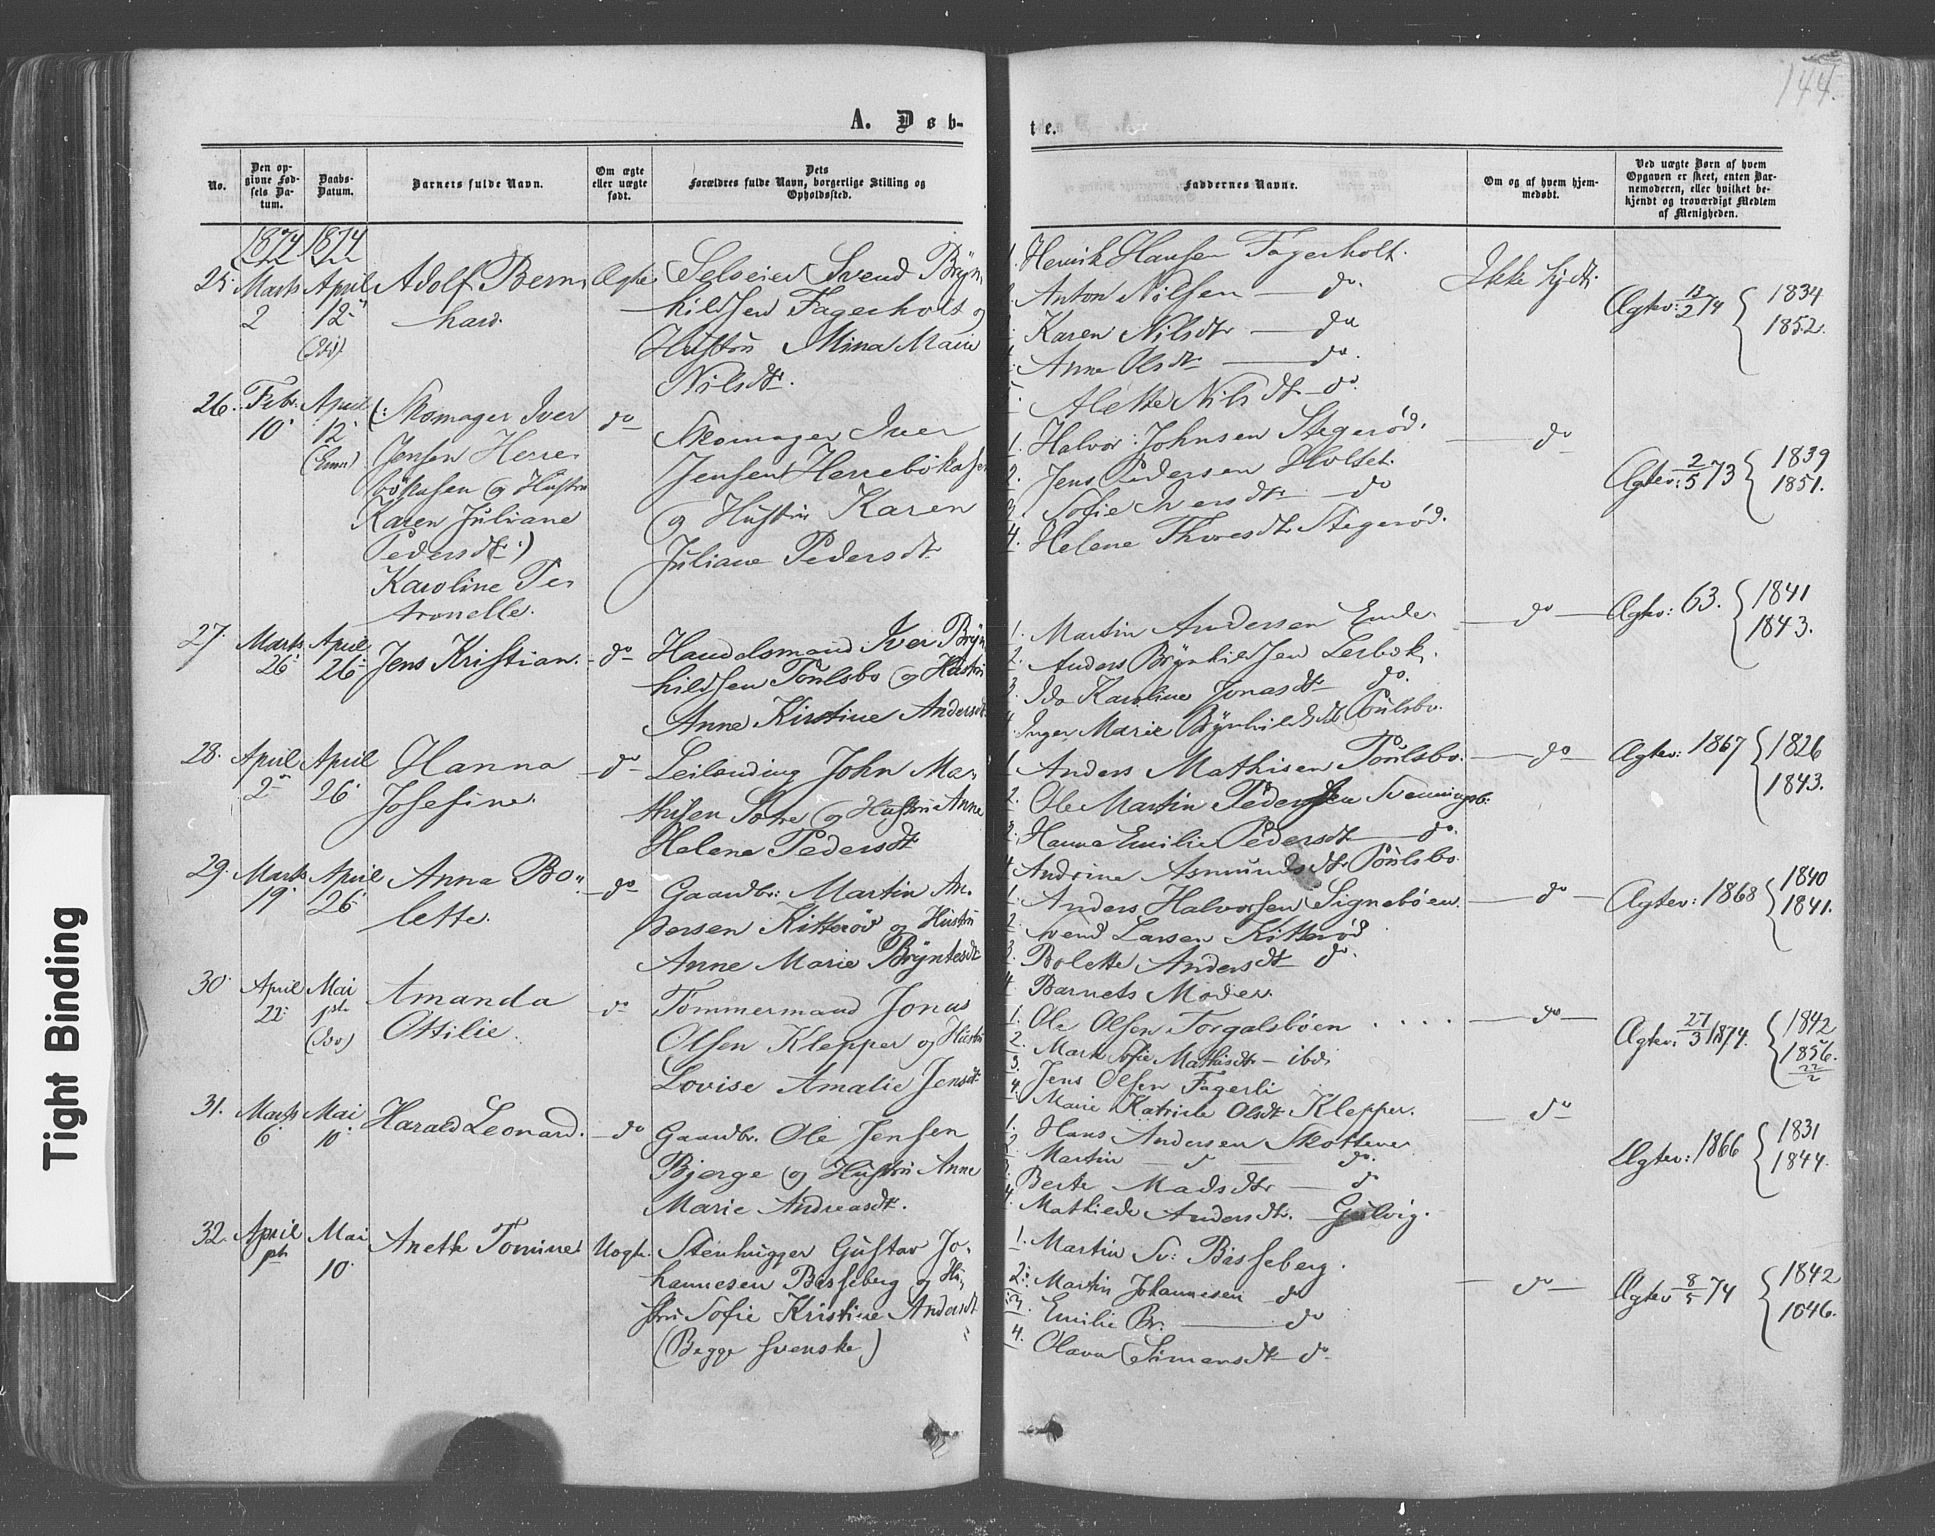 144.
A. Døb-
te.
No.
Den op-
givne Fød-
sels Da-
tum.
Daabs-
Datum.
Barnets fulde Navn.
Om ægte
eller uægte
født.
Dets
Forældres fulde Navn, borgerlige Stilling og
Opholdssted.
Faddernes Navne.
Om og af hvem hjem-
medøbt.
Ved uægte Børn af hvem
Opgaven er skeet, enten Bar-
nemoderen, eller hvilket be-
kjendt og troværdigt Medlem
af Menigheden.
1874 1874
25. Marts 2
April 12
Adolf Bern-
hard.
Ægte
Svend Bryn-
hildsen Fagerholt og
Hustru Mina Marie
Nilsdtr.
1. Henrik Hansen Fagerholt.
2. Anton Nilsen — do.
3. Karen Nilsdtr — do
4. Anne Olsdtr — do.
5. Alette Nilsdtr do.
Ikke hjdt.
Ægtev: 74 { 1834
1852.
26. Febr. 10
April 12
(Idd)
(: Skomager Iver
Jensen Herre-
og Hustru
Karen Juliane
Pedersdtr :)
Karoline Pe-
tronelle.
do
Skomager Iver
Jensen
og Hustru Karen
Juliane Pedersdtr
1. Halvor Johnsen Stegerød.
2. Jens Pedersen Holset.
3. Sofie Iversdtr — do
4. Helene Thoresdtr Stegerød.
— do
Ægtev: 2/5 73 { 1839
1851.
27. Marts 26
April 26
Jens Kristian.
do
Handelsmand Iver Bryn-
hildsen Poulsbo og Hustru
Anne Kirstine Andersdt.
1. Martin Andersen
2. Anders Brynhildsen Lerbok.
3. Ida Karoline Jonasdtr do.
4. Inger Marie Brynhildsdt Poulsbo.
— do —
Ægtev: 63. { 1841
1843.
28. April 2
April 26
Hanna
Josefine.
do
Leilending John Ma-
thisen Sotre og Hustru Anne
Helene Pedersdt
1. Anders Mathisen Poulsbo.
2. Ole Martin Pedersen
3. Hanna Emilie Pedersdt — do.
4. Andrine Asmundsdtr Poulsbo.
— do —
Ægtev: 1867 { 1826
1843.
29. Marts 19
April 26
Anna Bo-
lette.
do
Gaardbr: Martin An-
dersen Kitterød og Hustru
Anne Marie Bryntesdt
1. Anders Halvorsen Signebøen.
2. Svend Larsen Kitterød
3. Bolette Andersdt do.
4. Barnets Moder.
— do —
Ægtev: 1868 { 1840
1841.
30. April 22
Mai 1ste
Amanda
Ottilie.
do
Tømmermand Jonas
Olsen Klepper og Hustru
Lovise Amalie Jensdt
1. Ole Olsen Torgalsbøen . . . .
2. Mart. Sofie Mathisdtr — ibd.
3. Jens Olsen Fagerli
4. Marie Katrine Olsdt Klepper.
— do —
Ægtev: 27/3 1874. { 1842
1856.
22/2
31. Marts 6
Mai 10.
Harald Leonard.
do
Gaardbr. Ole Jensen
Bjerge og Hustru Anne
Marie Andreasdt.
1. Hans Andersen Skottene
2. Martin do — do.
3. Berte Madsdtr — do
4. Mathilde Andersdt. Gulvig.
— do —
Ægtev: 1866 { 1831
1844.
32. April
Mai 10.
Anette Tomine
Uægte.
Stenhugger Gustav Jo-
hannesen Basseberg og Hu-
stru Sofie Kristine Andersdt
(Begge svenske)
1. Martin Sv: Basseberg.
2. Martin Johannesen do
3. Emilie Br. — do
4. Olava Simensdt do
— do —
Ægtev 8/5 74 { 1842
1846.
Tight Binding